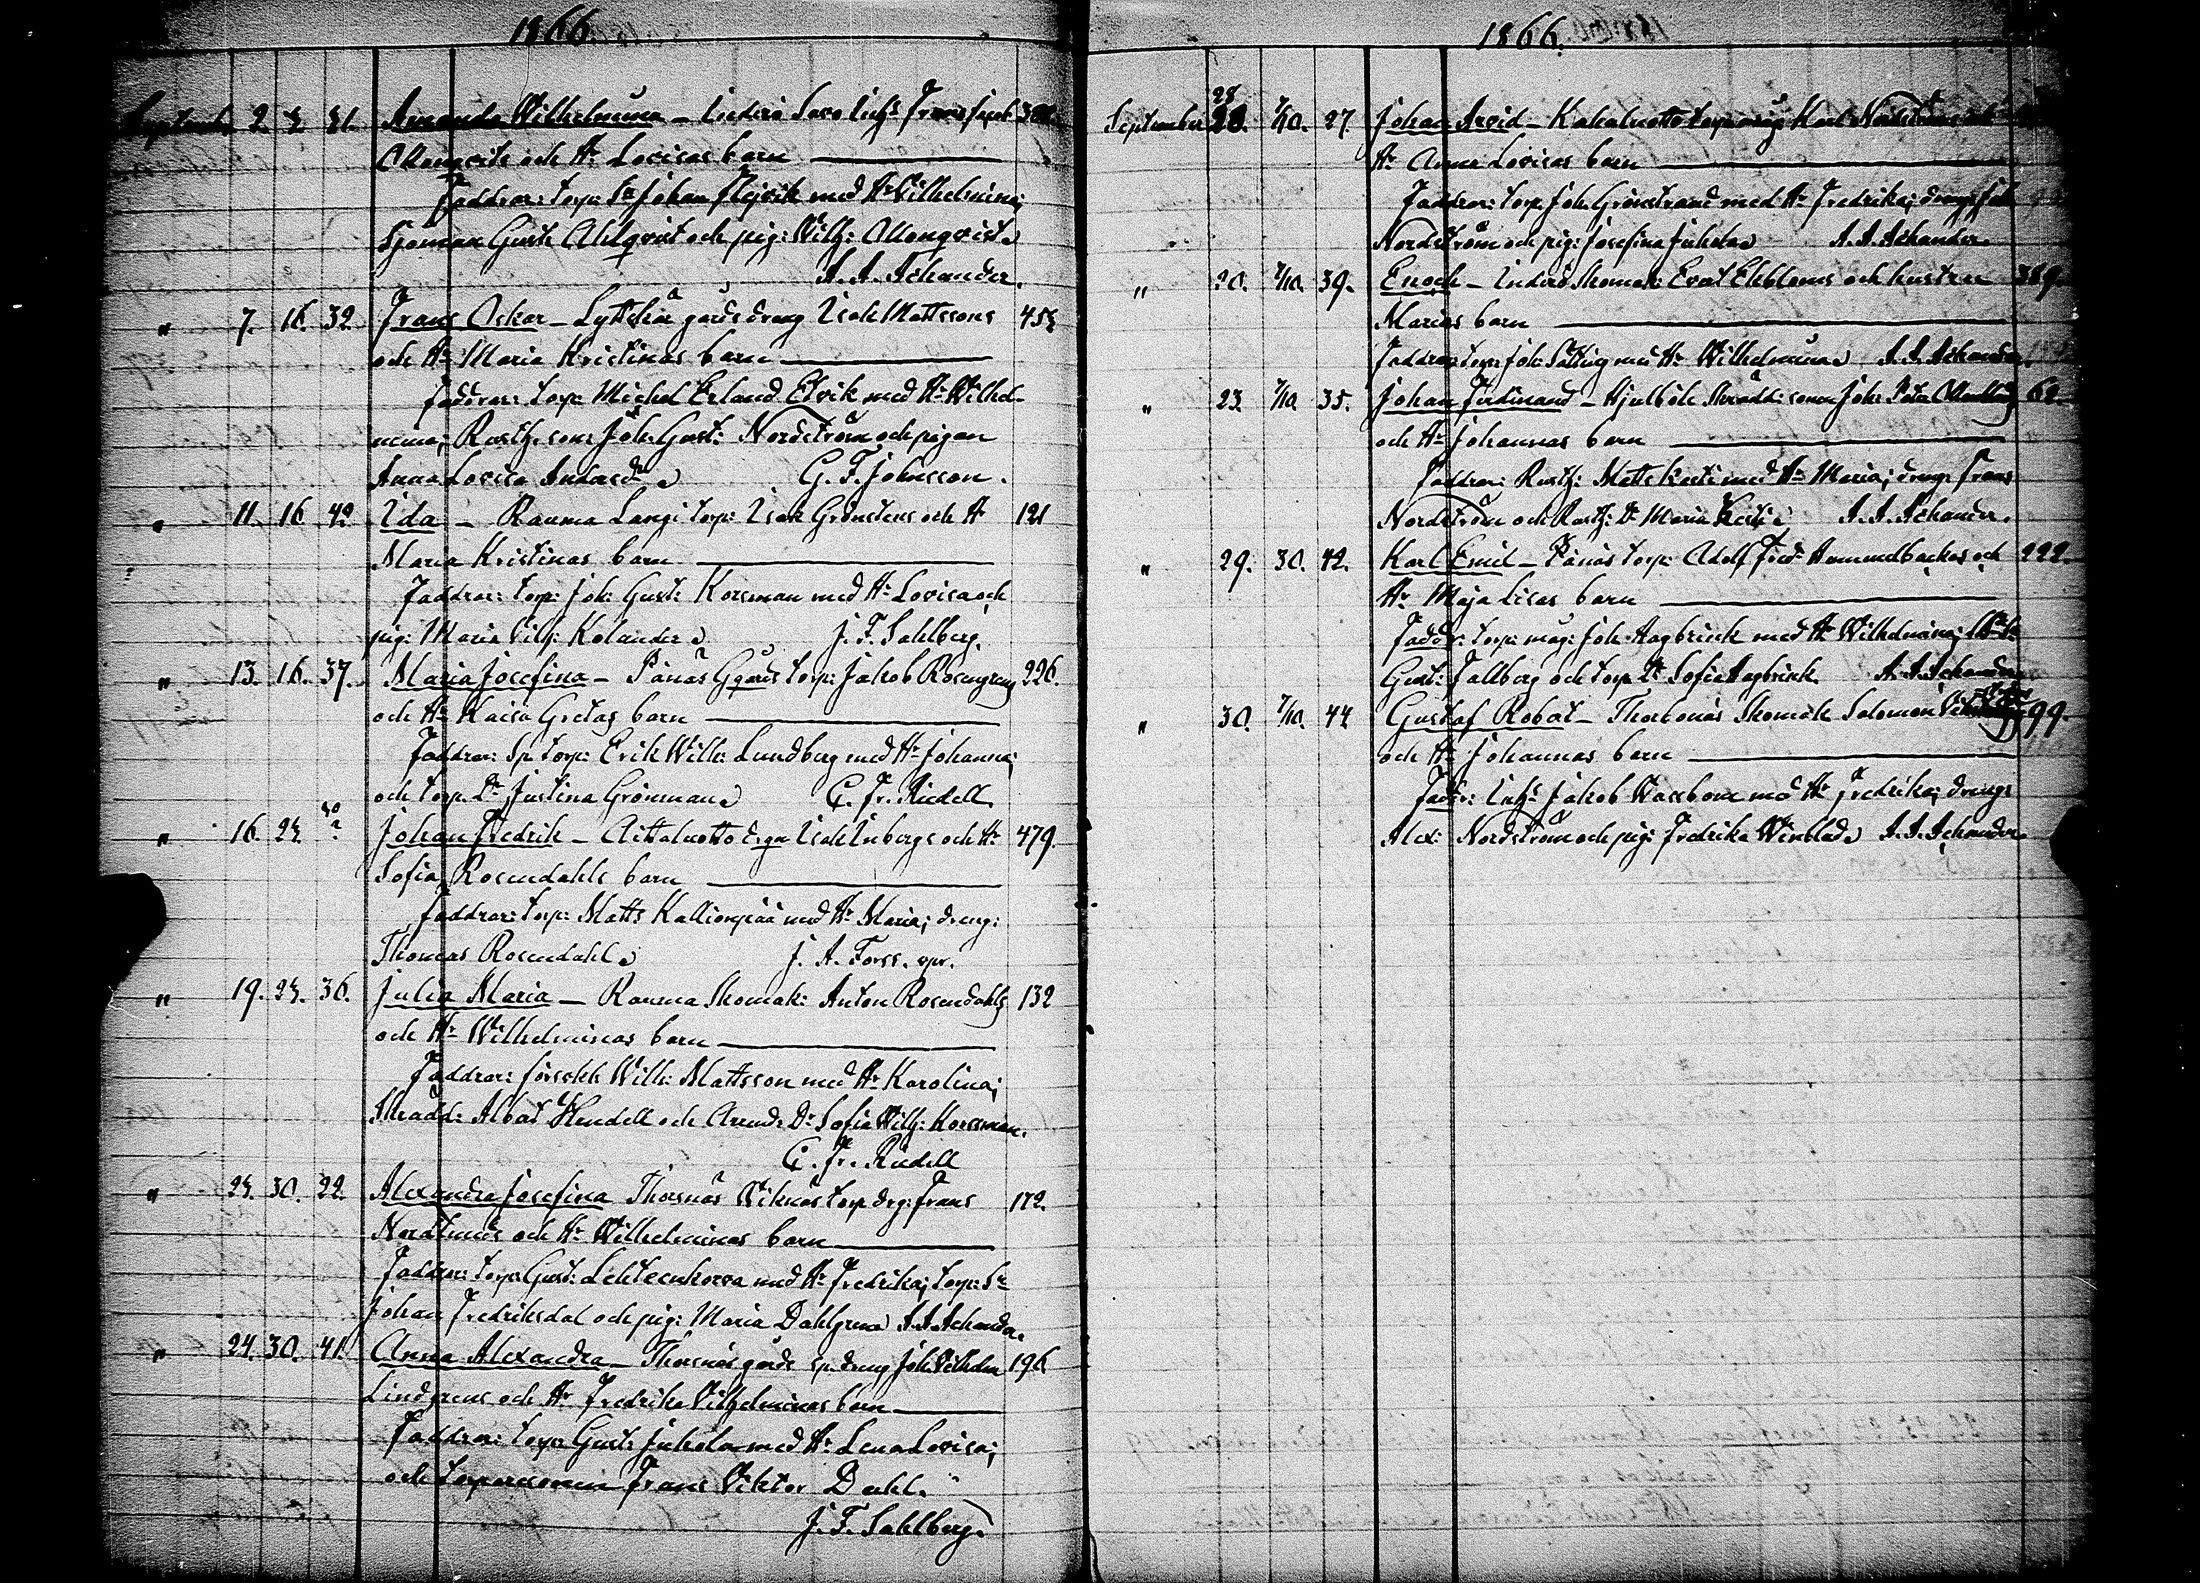 1866.
September 2. 31. Amanda Wilhelmina
och Hu Lovisas barn
Faddrar: torp: Sn Johan med Hu Vilhelmina;
Sjöman Gust. Ahlqvist och pig: Wilh:
A. A. Achander.
" 7. 16. 32. Frans Oskar – Lyttskär gårds dräng Isak Mattssons 453
och Hu Maria Kristinas barn
Faddrar: torp: Michel Erland Elvik med Hu Wilhel-
mina; Rusth. son Joh. Gust: Nordström och pigan
Anna Lovisa G. F. Johnsson.
" 11. 16. 42. Ida – Rauma Langi torp: Isak Grönstens och Hu 121
Maria Kristinas barn
Faddrar: torp: Joh: Gust: Korsman med Hu Lovisa och
pig: Maria Vilh: Kolander J. F. Sahlberg.
" 13. 16. 37. Maria Josefina – Pånäs torp: Jakob Rosengrens 226.
och Hu Kaisa Gretas barn
Faddrar: Sp. torp: Erik Wilh: Lundberg med Hu Johanna;
och torp. Dr Justina Grönman C. Fr. Riedell.
" 16. 23. Johan Fredrik – Aittaluotto Isak Inbergs och Hu 479.
Sofia Rosendahls barn
Faddrar: torp: Matts Kallionpää med Hu Maria; dreng:
Thomas Rosendahl J. A. Forss. vpr.
" 19. 23. 36. Julia Maria – Rauma Skomak: Anton Rosendahls 132
och Hu Wilhelminas barn
Faddrar: Wilh: Mattsson med Hu Karolina;
Skrädd: Albert Hendell och Arend: Dr Sofia Wilh: Korsman.
C. Fr. Riedell
" 23. 30. 22. Alexandra Josefina Thorsnäs Wiknäs torp drg: Frans 172.
Nordlunds och Hu Wilhelminas barn
Faddrar: torp: Gust: Lehteenkorva med Hu Fredrika; torp: Sn
Johan Fredriksdal och pig: Maria Dahlgren A. A. Achander.
" 24. 30. 41. Anna Alexandra – Thorsnäs gårds sp. dreng Joh. Vilhelm 196
Lindgrens och Hu Fredrika Vilhelminas barn
Faddrar: torp: Gust: Juhola med Hu Lena Lovisa;
och torparesonen Frans Viktor Dahl.
J. F. Sahlberg.
1866.
September 28 7/10. 27. Johan Arvid – Kahaluotto Karl Nordströms och
Hu Anna Lovisas barn
Faddrar: torp. Joh. Grönstrand med Hu Fredrika; drengs Joh
Nordström och pig: Josefina Juhola A. A. Achander.
" 20. 7/10. 39. Enoch – Inderö Skomak: Evert Ekbloms och hustrun 389.
Marias barn
Faddrar torp: Joh: med Hu Wilhelmina A. A. Achander.
" 23. 7/10. 35. Johan Ferdinand – Hjulböle Skrädd: sonen Joh: Peter 62
och Hu Johannas barn
Faddrar: Rusth: Matts Kesti med Hu Maria; dreng: Frans
Nordström och Rusth: Dr Maria Kesti A. A. Achander.
" 29. 30. 42. Karl Emil – Pånäs torp: Adolf Fred: Hummelbackas och 222.
Hu Maja Lisas barn
Faddr: torp: måg: Joh: Hagbrink med Hu Wilhelmina;
Gust: Fallberg och torp Dr Sofia Hagbrink. A. A. Achander
" 30. 7/10. 44 Gustaf Robert – Skomak Salomon 99.
och Hu Johannas barn
Faddr: Inh: Jakob Waxbom med Hu Fredrika; drengs
Alex: Nordström och pig: Fredrika Winblad A. A. Achander.